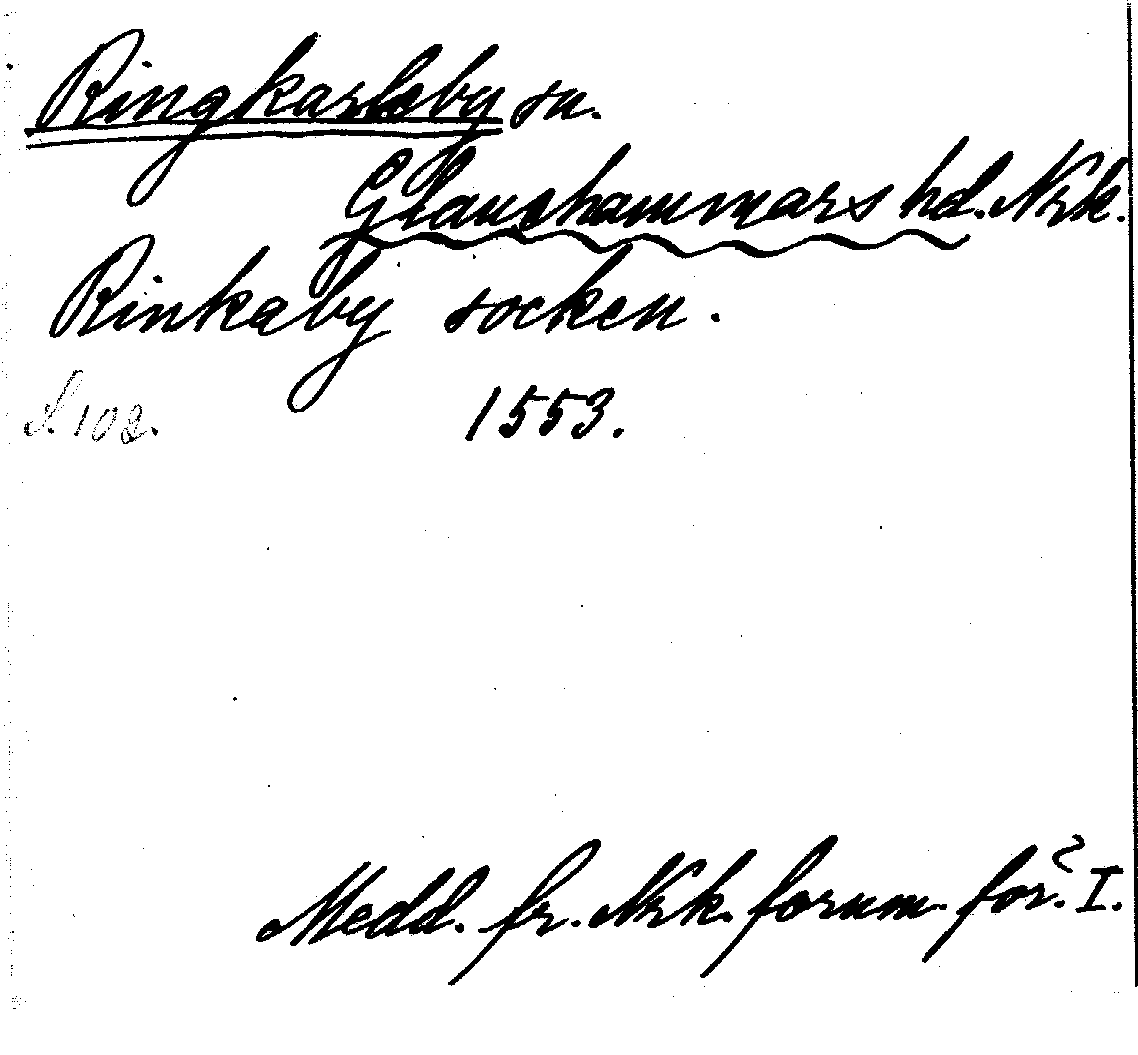 Ringkarleby sn.
Glanshammars hd. Nrk.
Rinkaby socken.
S. 102. 1553.
Medd. fr. Nrk. fornm. för. I.